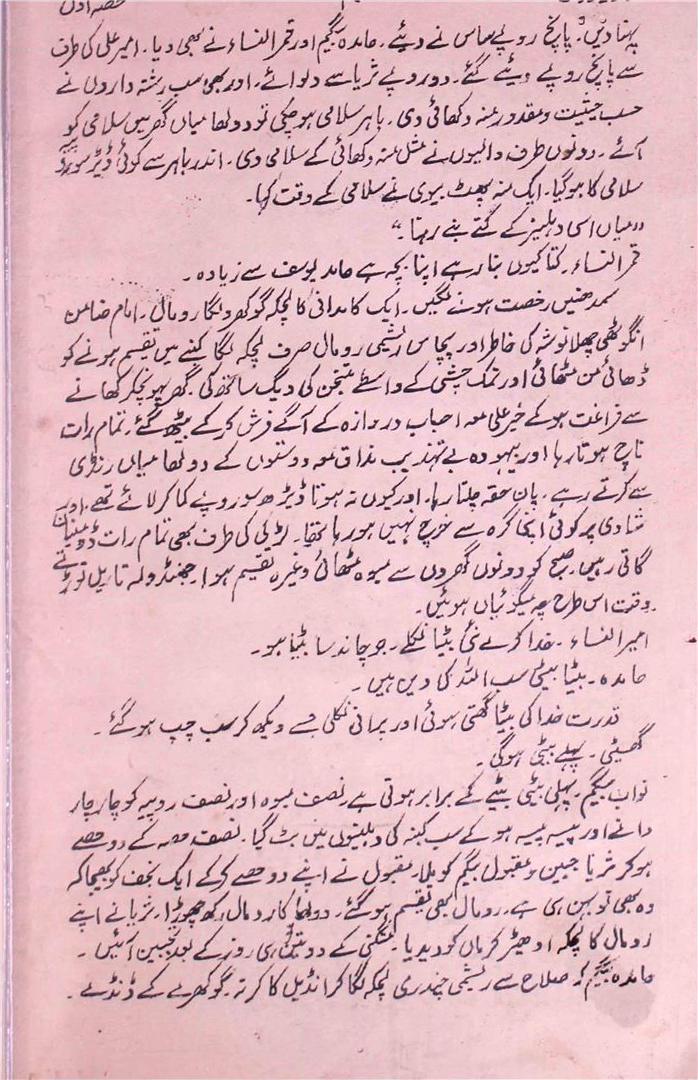 حصہ اول
پہنا دیں۔ پانچ روپے ساس نے دیئے۔ حامدہ بیگم اور قمر النساء نے بھی دیا۔ امیر علی کی طرف
سے پانچ روپے دیئے گئے۔ دو روپے ثریا سے دلوائے۔ اور بھی سب رشتہ داروں نے
حسب حیثیت و مقدور منہ دکھائی دی۔ باہر سلامی ہو چکی تو دولھا میاں گھر میں سلامی کو
آئے۔ دونوں طرف والیوں نے مثل منہ دکھائی کے سلامی دی۔ اندر باہر سے کوئی ڈیڑھ سو روپیہ
سلامی کا ہو گیا۔ ایک منہ پھٹ بیوی نے سلامی کے وقت کہا۔
"میاں اسی دہلیز کے کتے بنے رہنا۔"
قمر النساء۔ کتا کیوں بنا رہے اپنا بچہ ہے حامد یوسف سے زیادہ۔
سمدھنیں رخصت ہونے لگیں۔ ایک کامدانی کا لچکہ گوکھرو لگا رومال۔ امام ضامن
انگوٹھی چھلا نوشہ کی خاطر اور پچاس ریشمی رومال صرف لچکہ لگا کنبے میں تقسیم ہونے کو
ڈھائی من مٹھائی اور نمک چشی کے واسطے متنجن کی دیگ ساتھ کی۔ گھر پہونچکر کھانے
سے فراغت ہو کے خیر علی معہ احباب دروازہ کے آگے فرش کر کے بیٹھ گئے۔ تمام رات
ناچ ہوتا رہا اور بیہودہ بے تہذیب مذاق معہ دوستوں کے دولھا میاں رنڈی
سے کرتے رہے۔ پان حقہ چلتا رہا۔ اور کیوں نہ ہوتا ڈیڑھ سو روپے کما کر لائے تھے۔ اور
شادی پر کوئی اپنی گرہ سے خرچ نہیں ہو رہا تھا۔ لڑکی کی طرف بھی تمام رات ڈومنیاں
گاتی رہیں۔ صبح کو دونوں گھروں سے میوہ مٹھائی وغیرہ تقسیم ہوا۔ جھنڈولہ ناریل توڑتے
وقت اس طرح چہ میگوئیاں ہوئیں۔
امیر النساء۔ خدا کرے نئی بیٹا نکلے۔ جو چاند سا بیٹا ہو۔
حامدہ۔ بیٹا بیٹی سب اللہ کی دین ہیں۔
قدرت خدا کی بیٹا گھتی ہوئی اور پرانی نکلی جسے دیکھ کر سب چپ ہو گئے۔
گھسیٹی۔ پہلے بیٹی ہوگی۔
نواب بیگم۔ پہلی بیٹی بیٹے کے برابر ہوتی ہے۔ نصف میوہ اور نصف روپیہ کو چار چار
دانے اور پیسہ پیسہ ہو کے سب کنبہ کی دہلیتوں میں بٹ گیا۔ نصف حصہ کے دو حصے
ہو کر ثریا جبین و مقبول بیگم کو ملا۔ مقبول نے اپنے دو حصے کر کے ایک نجف کو بھیجا کہ
وہ بھی تو بہن ہی ہے۔ رومال بھی تقسیم ہو گئے۔ دولھا کا رومال رکھ چھوڑا۔ ثریا نے اپنے
رومال کا لچکہ ادھیڑ کر ماں کو دیدیا۔ منگنی کے دو تین ہی روز کے بعد نجیبن آئیں۔
حامدہ بیگم کہ صلاح سے ریشمی چندری لچکہ لگا کرانڈیل کا کرتہ۔ گوکھرے کے ڈنڈے۔